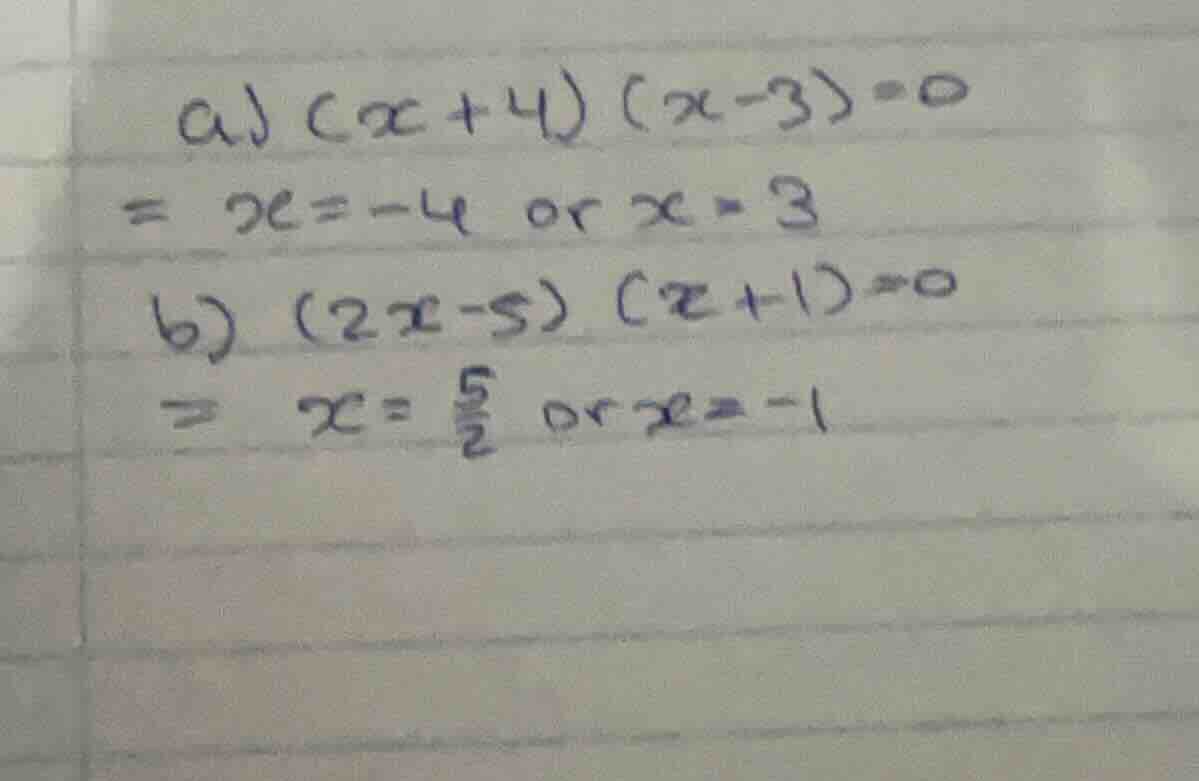 a) (x+4) (x-3)=0
= x=-4 or x=3
b) (2x-5) (x+1)=0
= x= 5/2 or x=-1